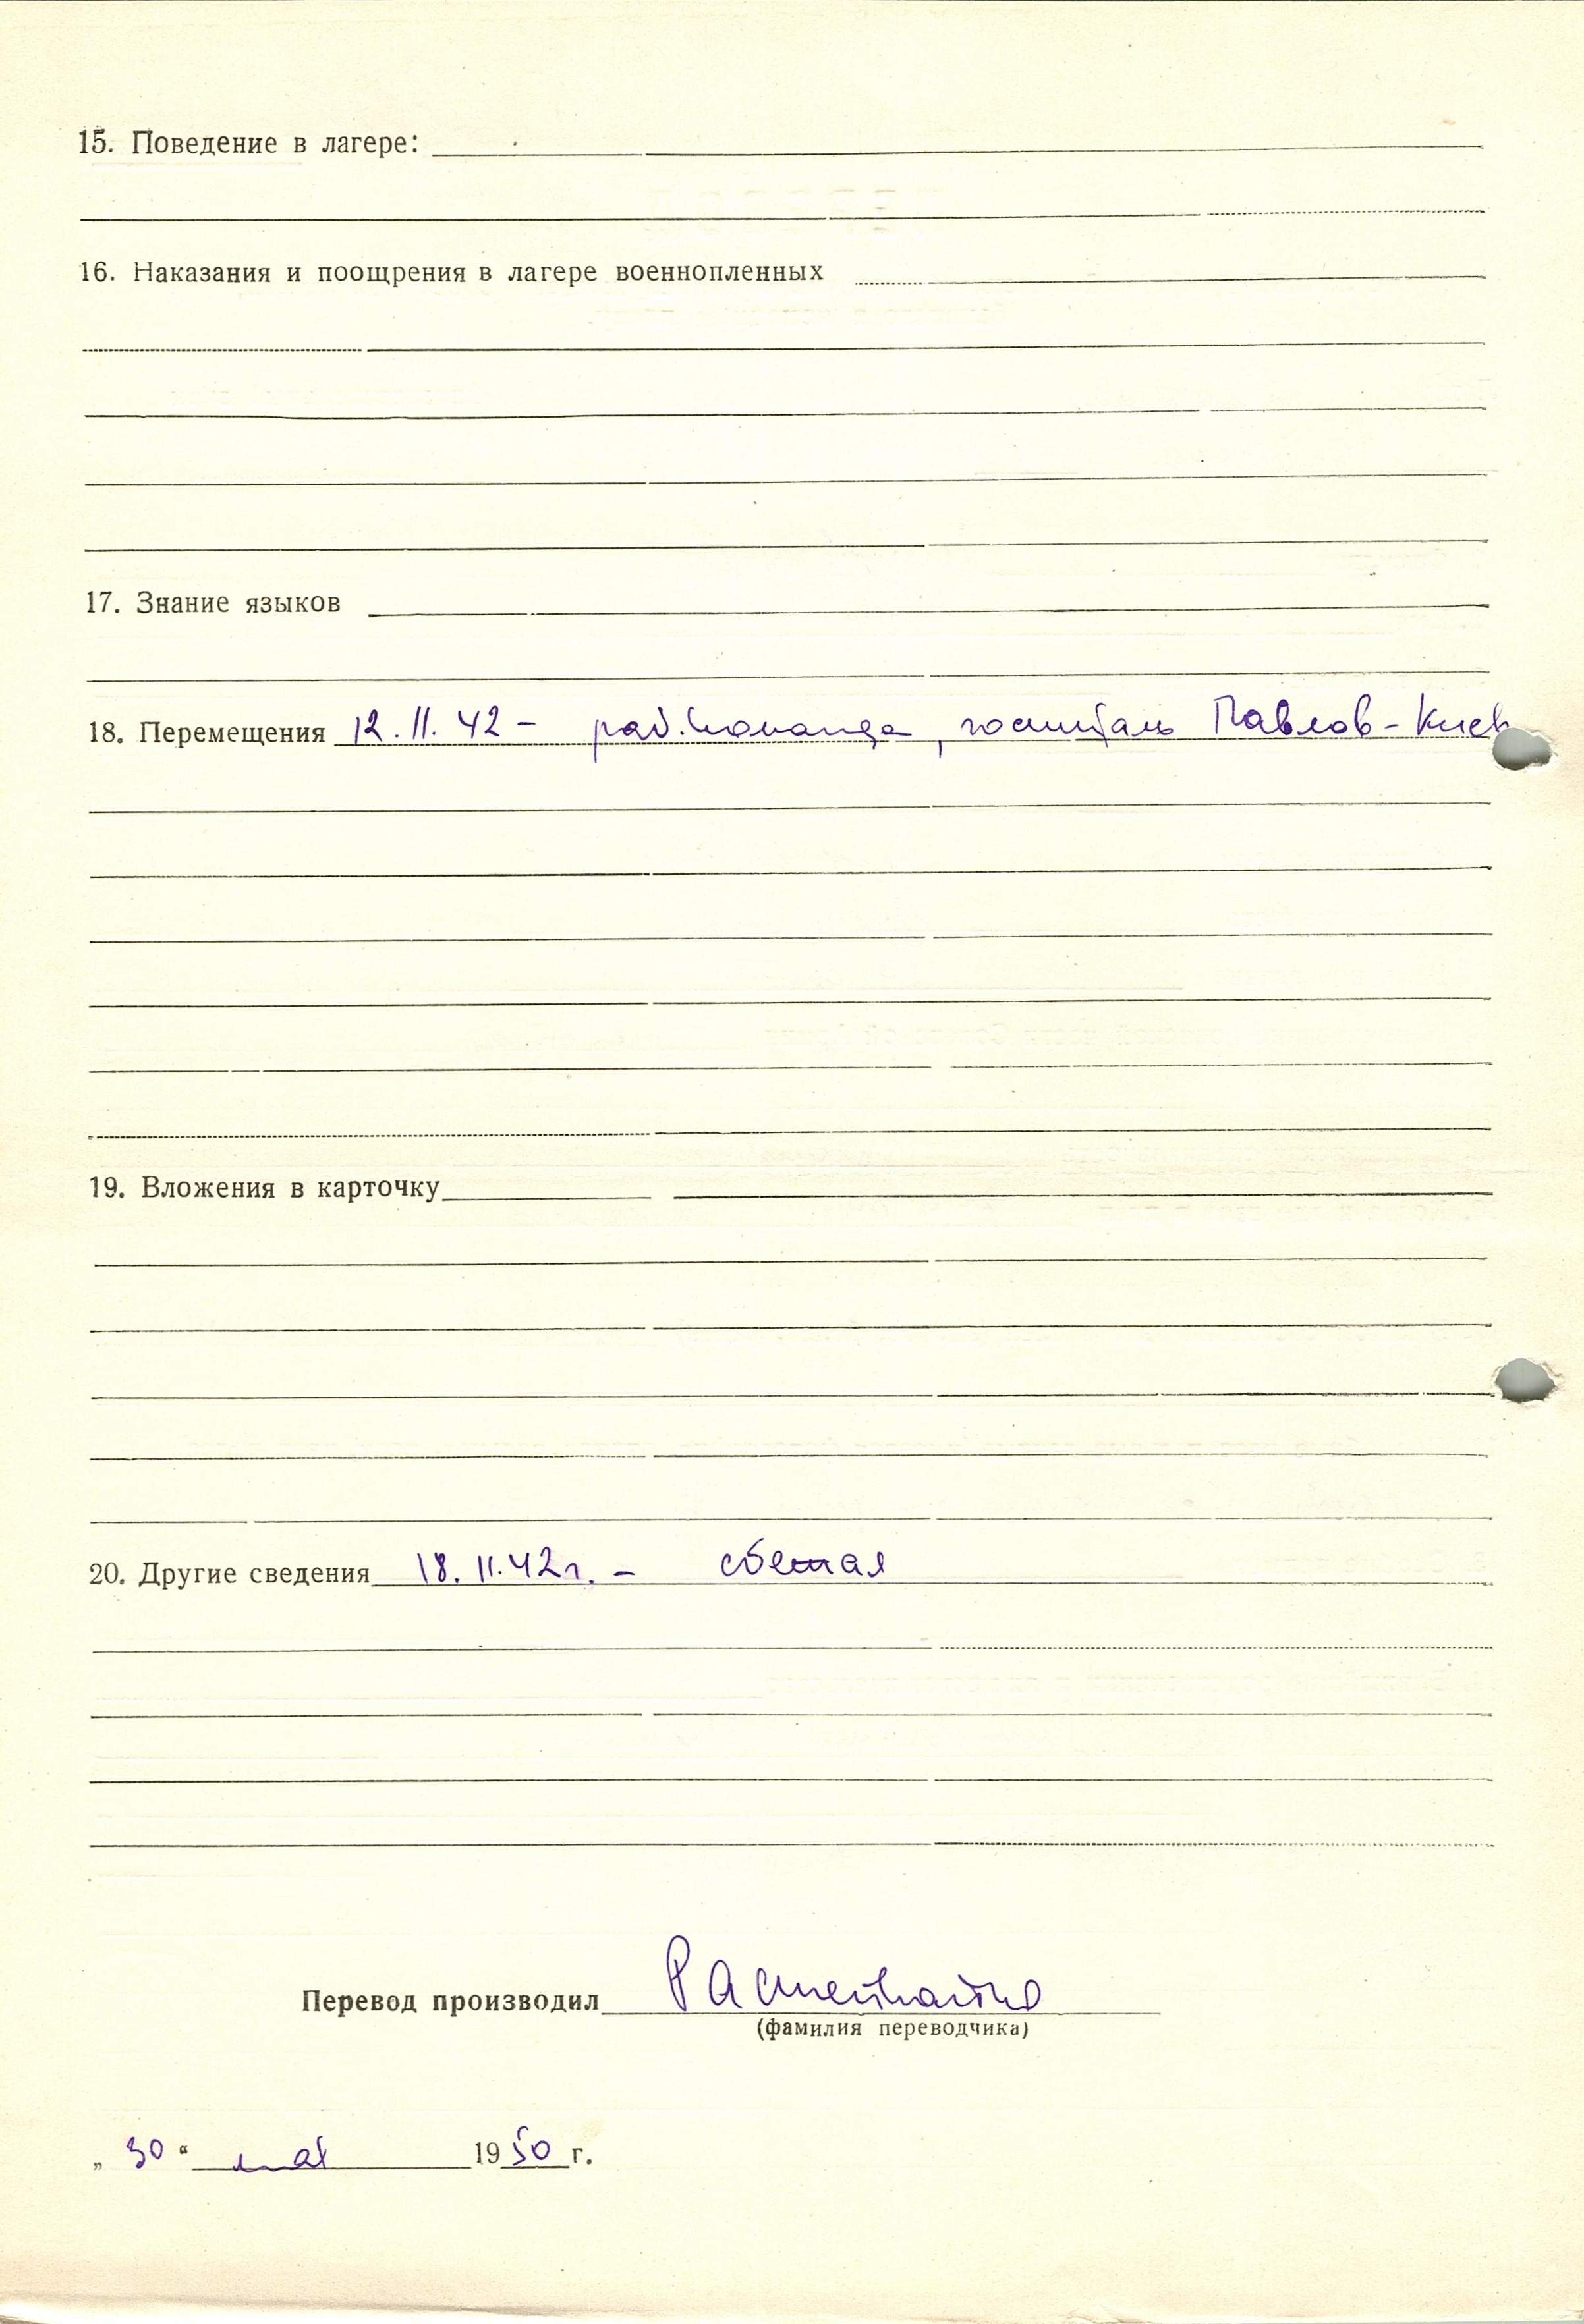 15. Поведение в лагере:
16. Наказания и поощрения в лагере военнопленных
17. Знание языков
18. Перемещения 12.11.42 – раб.команда, госпиталь Павлов-Киев
19. Вложения в карточку
20. Другие сведения 18.11.42г. – сбежал
Перевод производил
(фамилия переводчика)
„ 30 “ мая 1950 г.